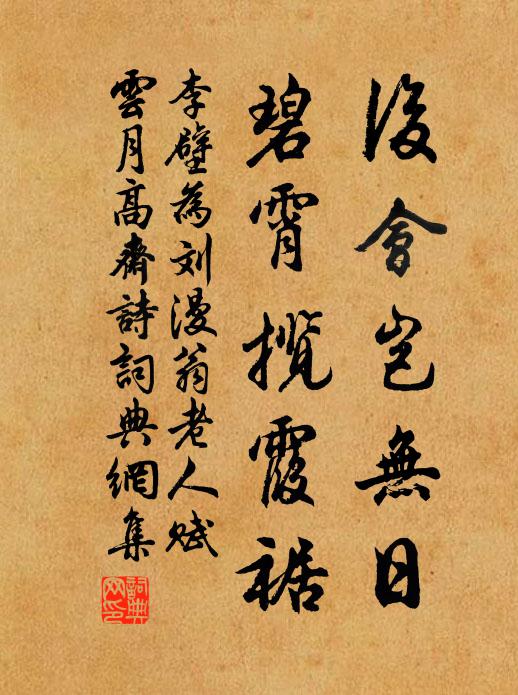 後會豈無日
碧霄攬霞裾
李壁為刘漫翁老人賦
雲月高齋詩詞典網集
詞典
网印